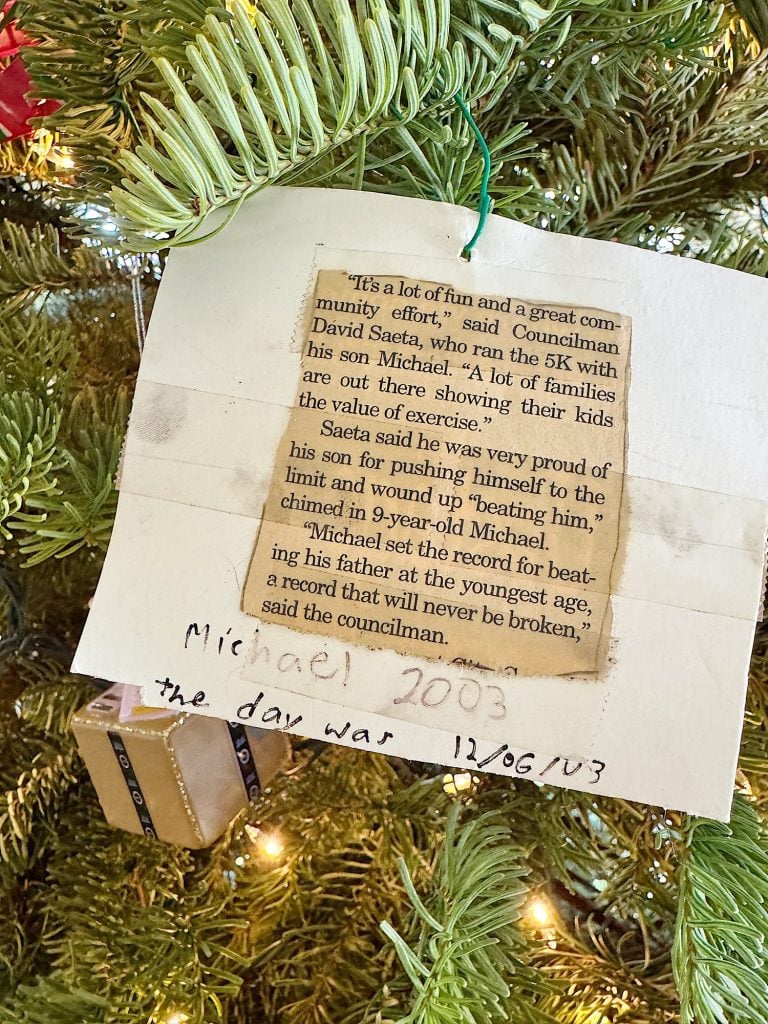 “It’s a lot of fun and a great com-
munity effort,” said Councilman
David Saeta, who ran the 5K with
his son Michael. “A lot of families
are out there showing their kids
the value of exercise.”
Saeta said he was very proud of
his son for pushing himself to the
limit and wound up “beating him,”
chimed in 9-year-old Michael.
“Michael set the record for beat-
ing his father at the youngest age,
a record that will never be broken,”
said the councilman.
Michael 2003
the day was 12/06/03